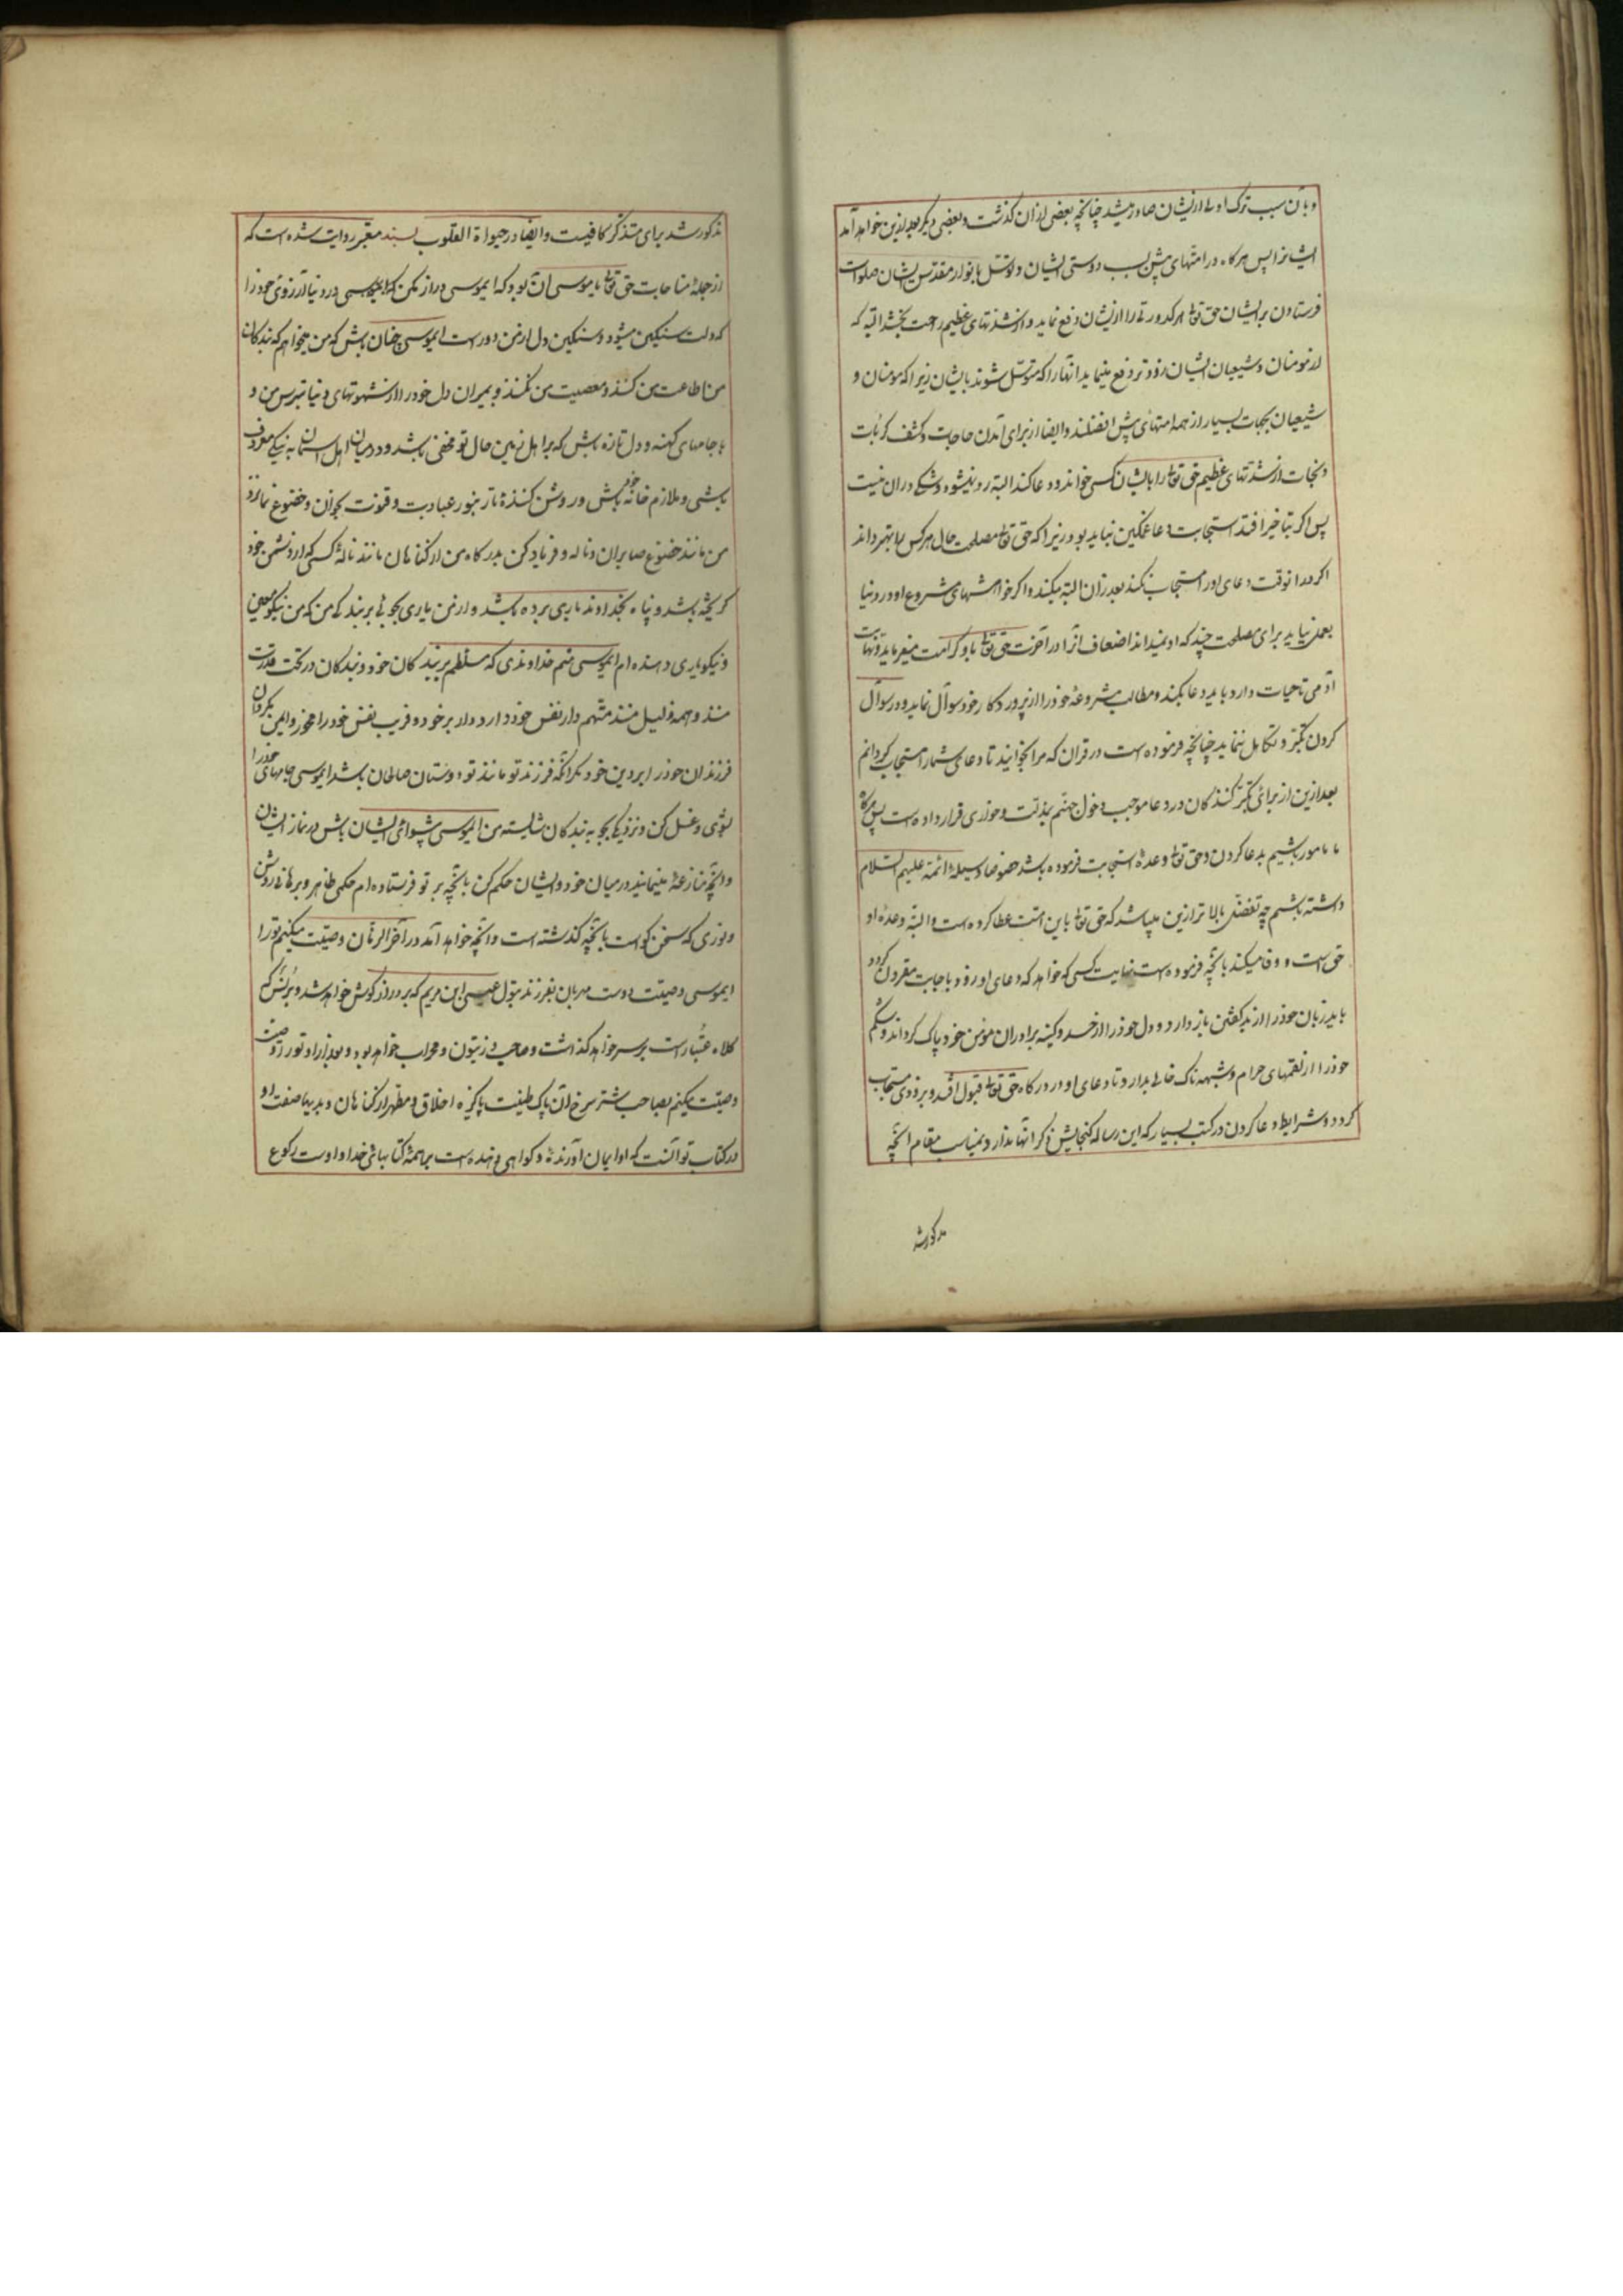 و بآن سبب ترک اولی ازیشان صادر میشد چنانچه بعضی ازان گذشت و بعضی دیگر بعد ازین خواهد آمد
ایشانرا پس هرگاه در امتهای پیش بسبب دوستی ایشان و توسّل بانوار مقدّس ایشان صلوات
فرستادن بر ایشان حق تعالی هر کدورتی را ازیشان دفع نماید و از شدّتهای عظیم راحت بخشد البته که
از مومنان و شیعیان ایشان زودتر دفع مینماید آنها را که متوسّل شوند بایشان زیرا که مومنان و
شیعیان بجهات بسیار از همه امتهای پیش افضلند و ایضا از برای آمدن حاجات و کشف کربات
و نجات از شدّتهای عظیم حق تعالی را بایشان کسی خواند و دعا کند البته رد نمیشود و شکی دران نیست
پس اگر بتاخیر افتد استجابت دعا غمگین نباید بود زیرا که حق تعالی مصلحت حال هر کس را بهتر داند
اگر در آنوقت دعای او را مستجاب نکند بعد ازان البته میکند و اگر خواهشهای مشروع او در دنیا
بعمل نیاید برای مصلحت چند که او نمیداند اضعاف آنرا در آخرت حق تعالی باو کرامت میفرماید و نهایت
آدمی تا حیات دارد باید دعا بکند و مطالب مشروعهٔ خود را از پروردگار خود سوآل نماید و در سوآل
کردن تکبّر و تکاهل ننماید چنانچه فرموده است در قران که مرا بخوانید تا دعای شما را مستجاب گردانم
بعد ازین از برای تکبّر کنندگان در دعا موجب دخول جهنّم بذلّت و خواری قرار داده است پس هرگاه
ما مامور باشیم بدعا کردن و حق تعالی وعدهٔ استجابت فرموده باشد خصوصا وسیلهٔ ائمّه علیهم السّلام
داشته باشیم چه تفضّل بالاتر ازین میباشد که حق تعالی باین امّت عطا کرده است و البتّه وعدهٔ او
حق است و وفا میکند بآنچه فرموده است نهایت کسی که خواهد که دعای او زود باجابت مقرون گردد
باید زبان خود را از بد گفتن باز دارد و دل خود را از حسد و کینه برادران مومن خود پاک گرداند و شکم
خود را از لقمهای حرام و شبهه ناک خالی بدارد تا دعای او در درگاه حق تعالی قبول افتد و بزودی مستجاب
گردد و شرایط دعا کردن در کتب بسیار که این رساله گنجایش ذکر آنها ندارد و بمناسب مقام آنچه
مذکور شد
مذکور شد برای متذکر کافیست و ایضا در حیواة القلوب بسند معتبر روایت شده است که
از جملهٔ مناجات حق تعالی با موسی آن بود که ایموسی دراز مکن در دنیا آرزوی خود را
که دلت سنگین میشود و سنگین دل از من دورست ایموسی چنان باش که من میخواهم که بندگان
من اطاعت من کنند و معصیت من نکنند و بمیران دل خود را از شهوتهای دنیا بترس من و
با جامهای کهنه و دل تازه باش که بر اهل زمین حال تو مخفی باشد و در میان اهل آسمان به نیکی معروف
باشی و ملازم خانه خود باش و روشن کنندهٔ تار بنور عبادت و قنوت بخوان و خضوع نما نزد
من مانند خضوع صابران و ناله و فریاد کن بدرگاه من از گناهان مانند نالهٔ کسی که از دشمن خود
گریخته باشد و پناه بخداوند یاری برده باشد و از من یاری بجو بر بندگی من که من نیکو معین
و نیکو یاری دهنده ام ایموسی منم خداوندی که مسلّطم بر بندگان خود و بندگان در تحت قدرت
منند و همه ذلیل منند متّهم دار نفس خود و فریب نفس خود را مخور و ایمن مگردان
فرزندان خود را بر دین خود مگر آنکه فرزند تو مانند تو دوستان صالحان باشد ایموسی جامهای خود را
بشوی و غسل کن و نزدیکی بجو به بندگان شایسته من ایموسی پیشوای ایشان باش در نماز ایشان
و آنچه منازعه مینمایند در میان خود و ایشان حکم کن بآنچه بر تو فرستاده ام حکمی ظاهر و برهانی روشن
و نوری که سخن گو است بآنچه گذشته است و آنچه خواهد آمد در آخر الزمان وصیّت میکنم تو را
ایموسی وصیّت دوست مهربان بفرزند بتول عیسی ابن مریم که بر دراز گوش خواهد شد و برنس که
کلاه عبّادست بر سر خواهد گذاشت و صاحب زیتون و محراب خواهد بود و بعد ازو تو را
وصیّت میکنم بصاحب شتر سرخ آن پاک طینت پاکیزه اخلاق و مطهّر از گناهان و بدیها صفت او
در کتاب تو آنست که او ایمان آورنده و گواهی دهنده است بر همهٔ کتابهای خدا و اوست رکوع